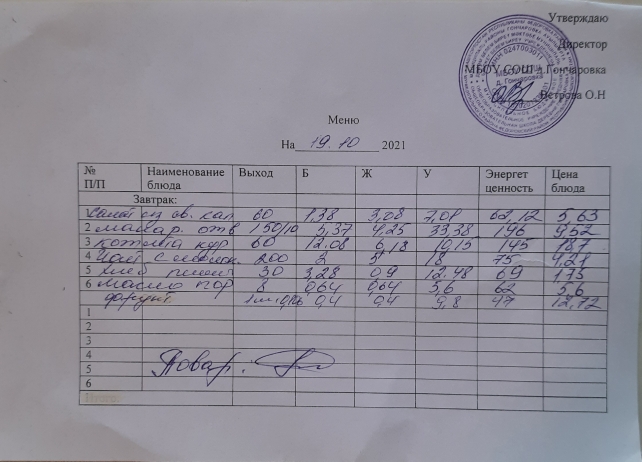 Утверждаю
Директор
МБОУ СОШ д.Гончаровка
Петрова О.Н
Меню
На 19.10 2021
№ П/П Наименование блюда Выход Б Ж У Энергет ценность Цена блюда
Завтрак:
1 Салат из св. кап 60 1,38 3,08 7,01 62,12 5,63
2 макар. отв 150/10 5,37 4,25 33,38 196 9,52
3 котлета кур 60 12,08 6,18 10,15 145 18,7
4 чай с 200 2 5 18 75 4,21
5 хлеб пшен 30 3,28 0,9 12,48 69 1,75
6 масло пор 8 0,64 0,64 5,6 62 5,6
фрукт 0,4 0,4 9,8 47 12,72
1
2
3
4
Повар.
5
6